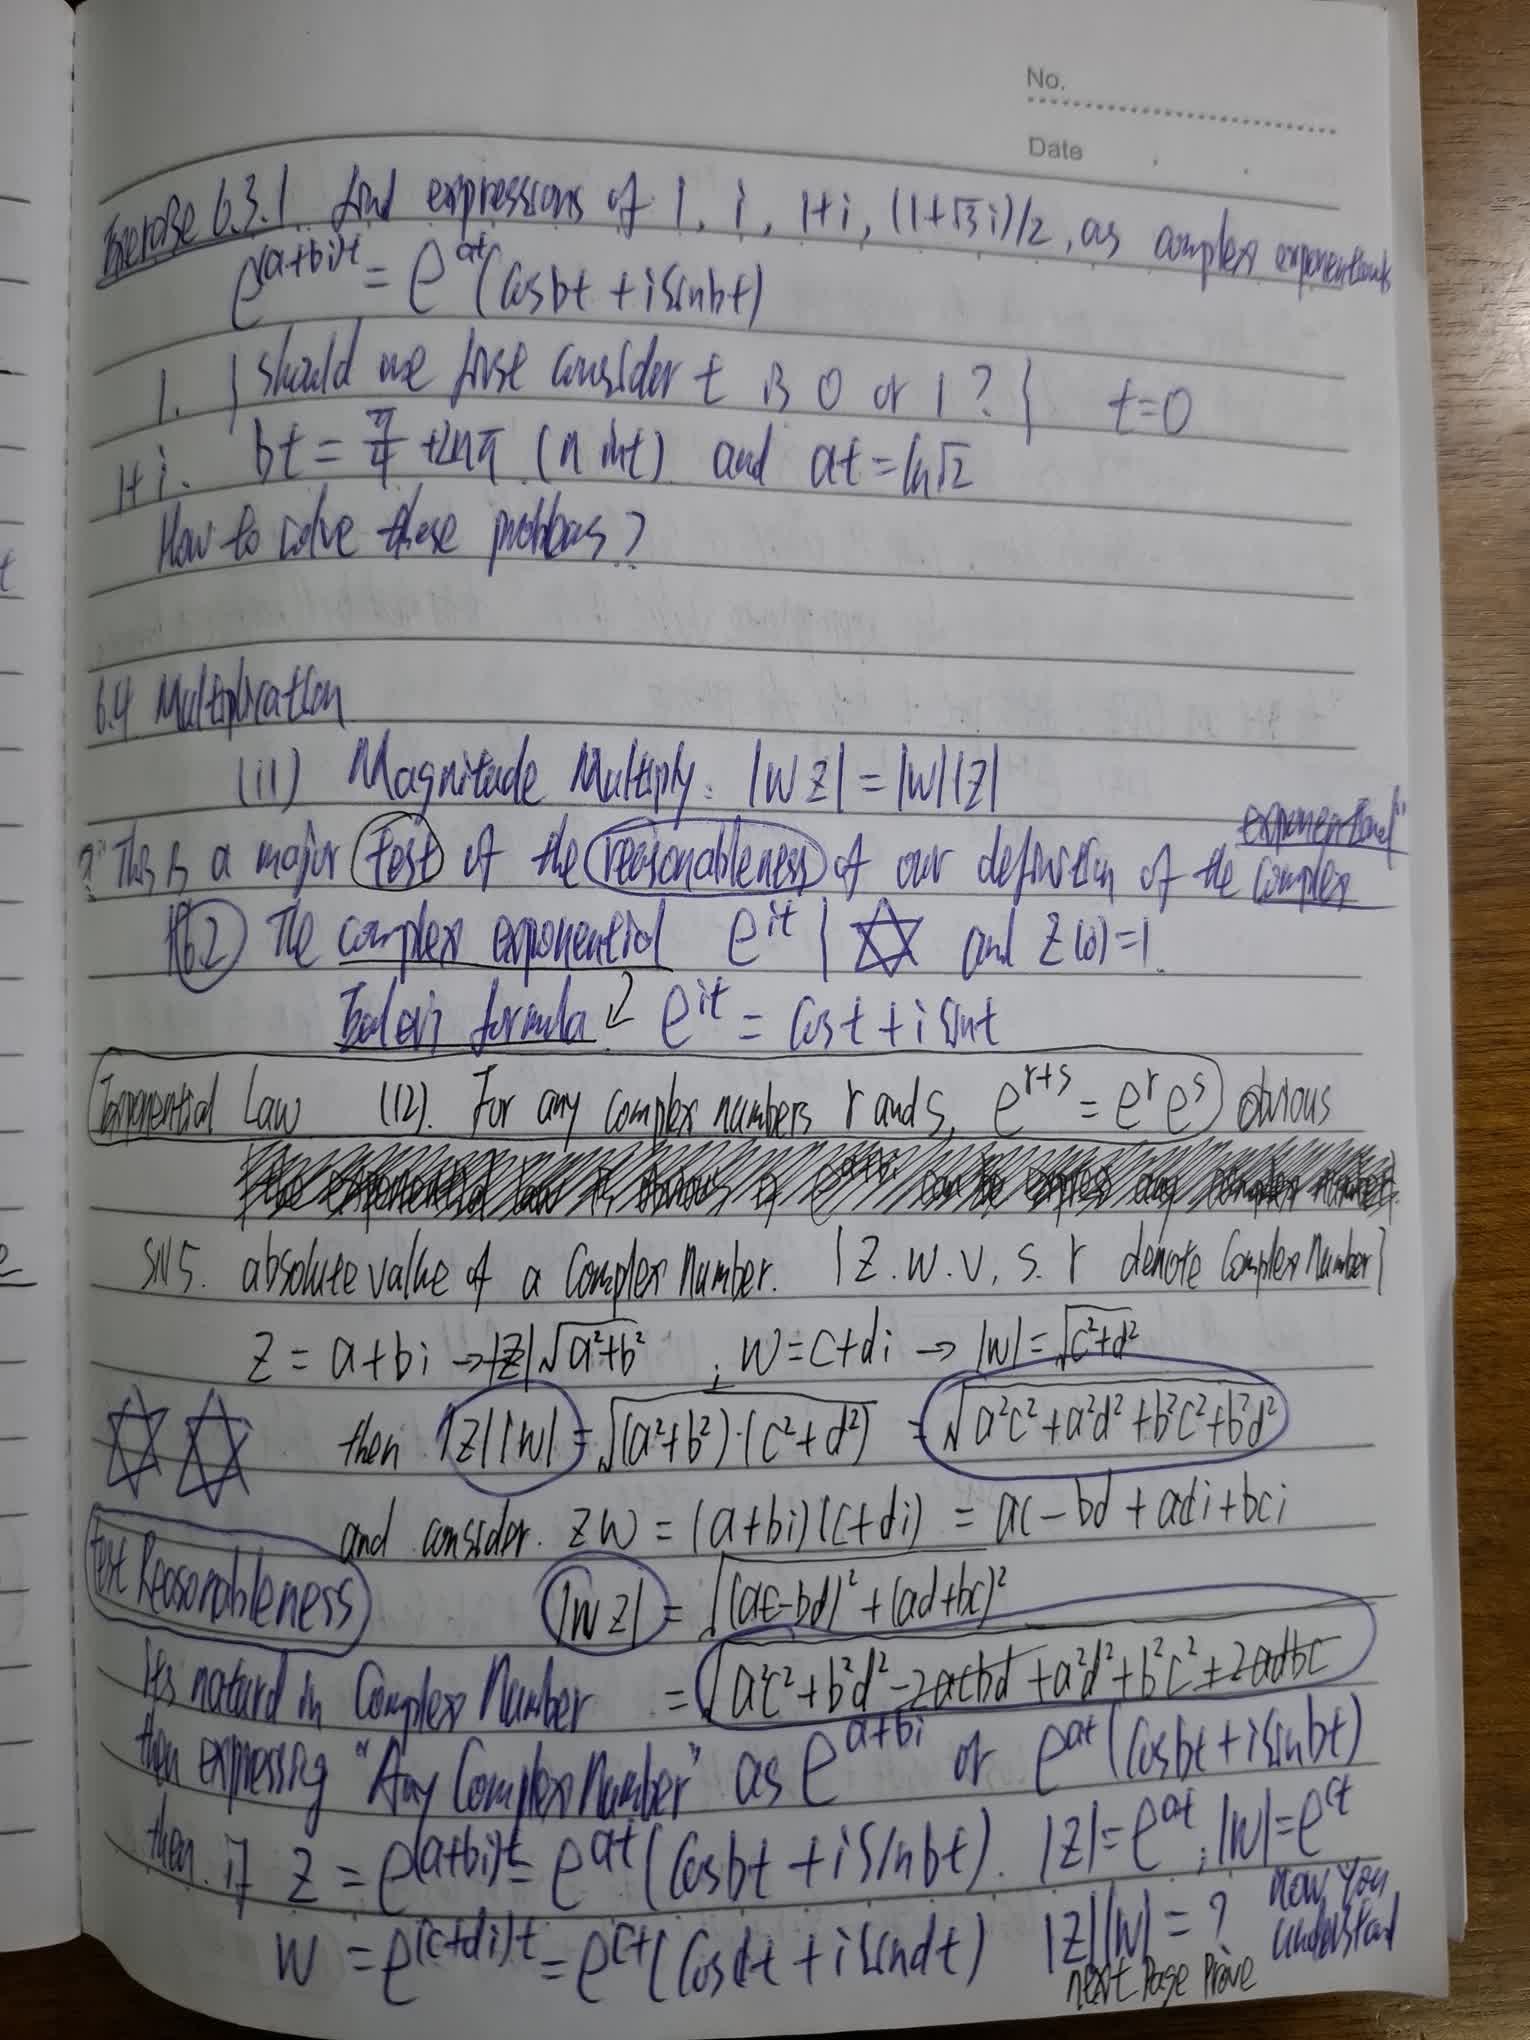 No.
Date
Exercise 6.3.1 find expressions of 1, i, 1+i, (1+√3i)/2, as complex exponentials
e^(a+bi)t = e^at (cosbt + isinbt)
1. { should we first consider t is 0 or 1 ? } t=0
1+i. bt = π/4 + 2nπ (n int) and at = ln√2
How to solve these problems?
6.4 Multiplication
(11) Magnitude Multiply: |wz| = |w||z|
"This is a major test of the reasonableness of our definition of the complex exponential"
(6.2) The complex exponential e^it | ✡ and z(0)=1.
Euler's formula e^it = cost + isint
Exponential Law (12). For any complex numbers r and s, e^r+s = e^r e^s obvious
SN5. absolute value of a Complex Number. {z. w. v, s. r denote Complex Number}
z = a+bi → |z| √a²+b² ; w = c+di → |w| = √c²+d²
then |z||w| = √(a²+b²)·(c²+d²) = √a²c²+a²d²+b²c²+b²d²
and consider. zw = (a+bi)(c+di) = ac-bd+adi+bci
Test Reasonableness
|wz| = √(ac-bd)²+(ad+bc)²
= √a²c²+b²d²-2acbd+a²d²+b²c²+2adbc
its natural in Complex Number
then expressing "Any Complex Number" as e^a+bi or e^at (cosbt + isinbt)
then. if z = e^(a+bi)t = e^at (cosbt + isinbt). |z| = e^at ; |w| = e^ct
w = e^(c+di)t = e^ct (cosdt + isindt) |z||w| = ? now you understand
next page prove